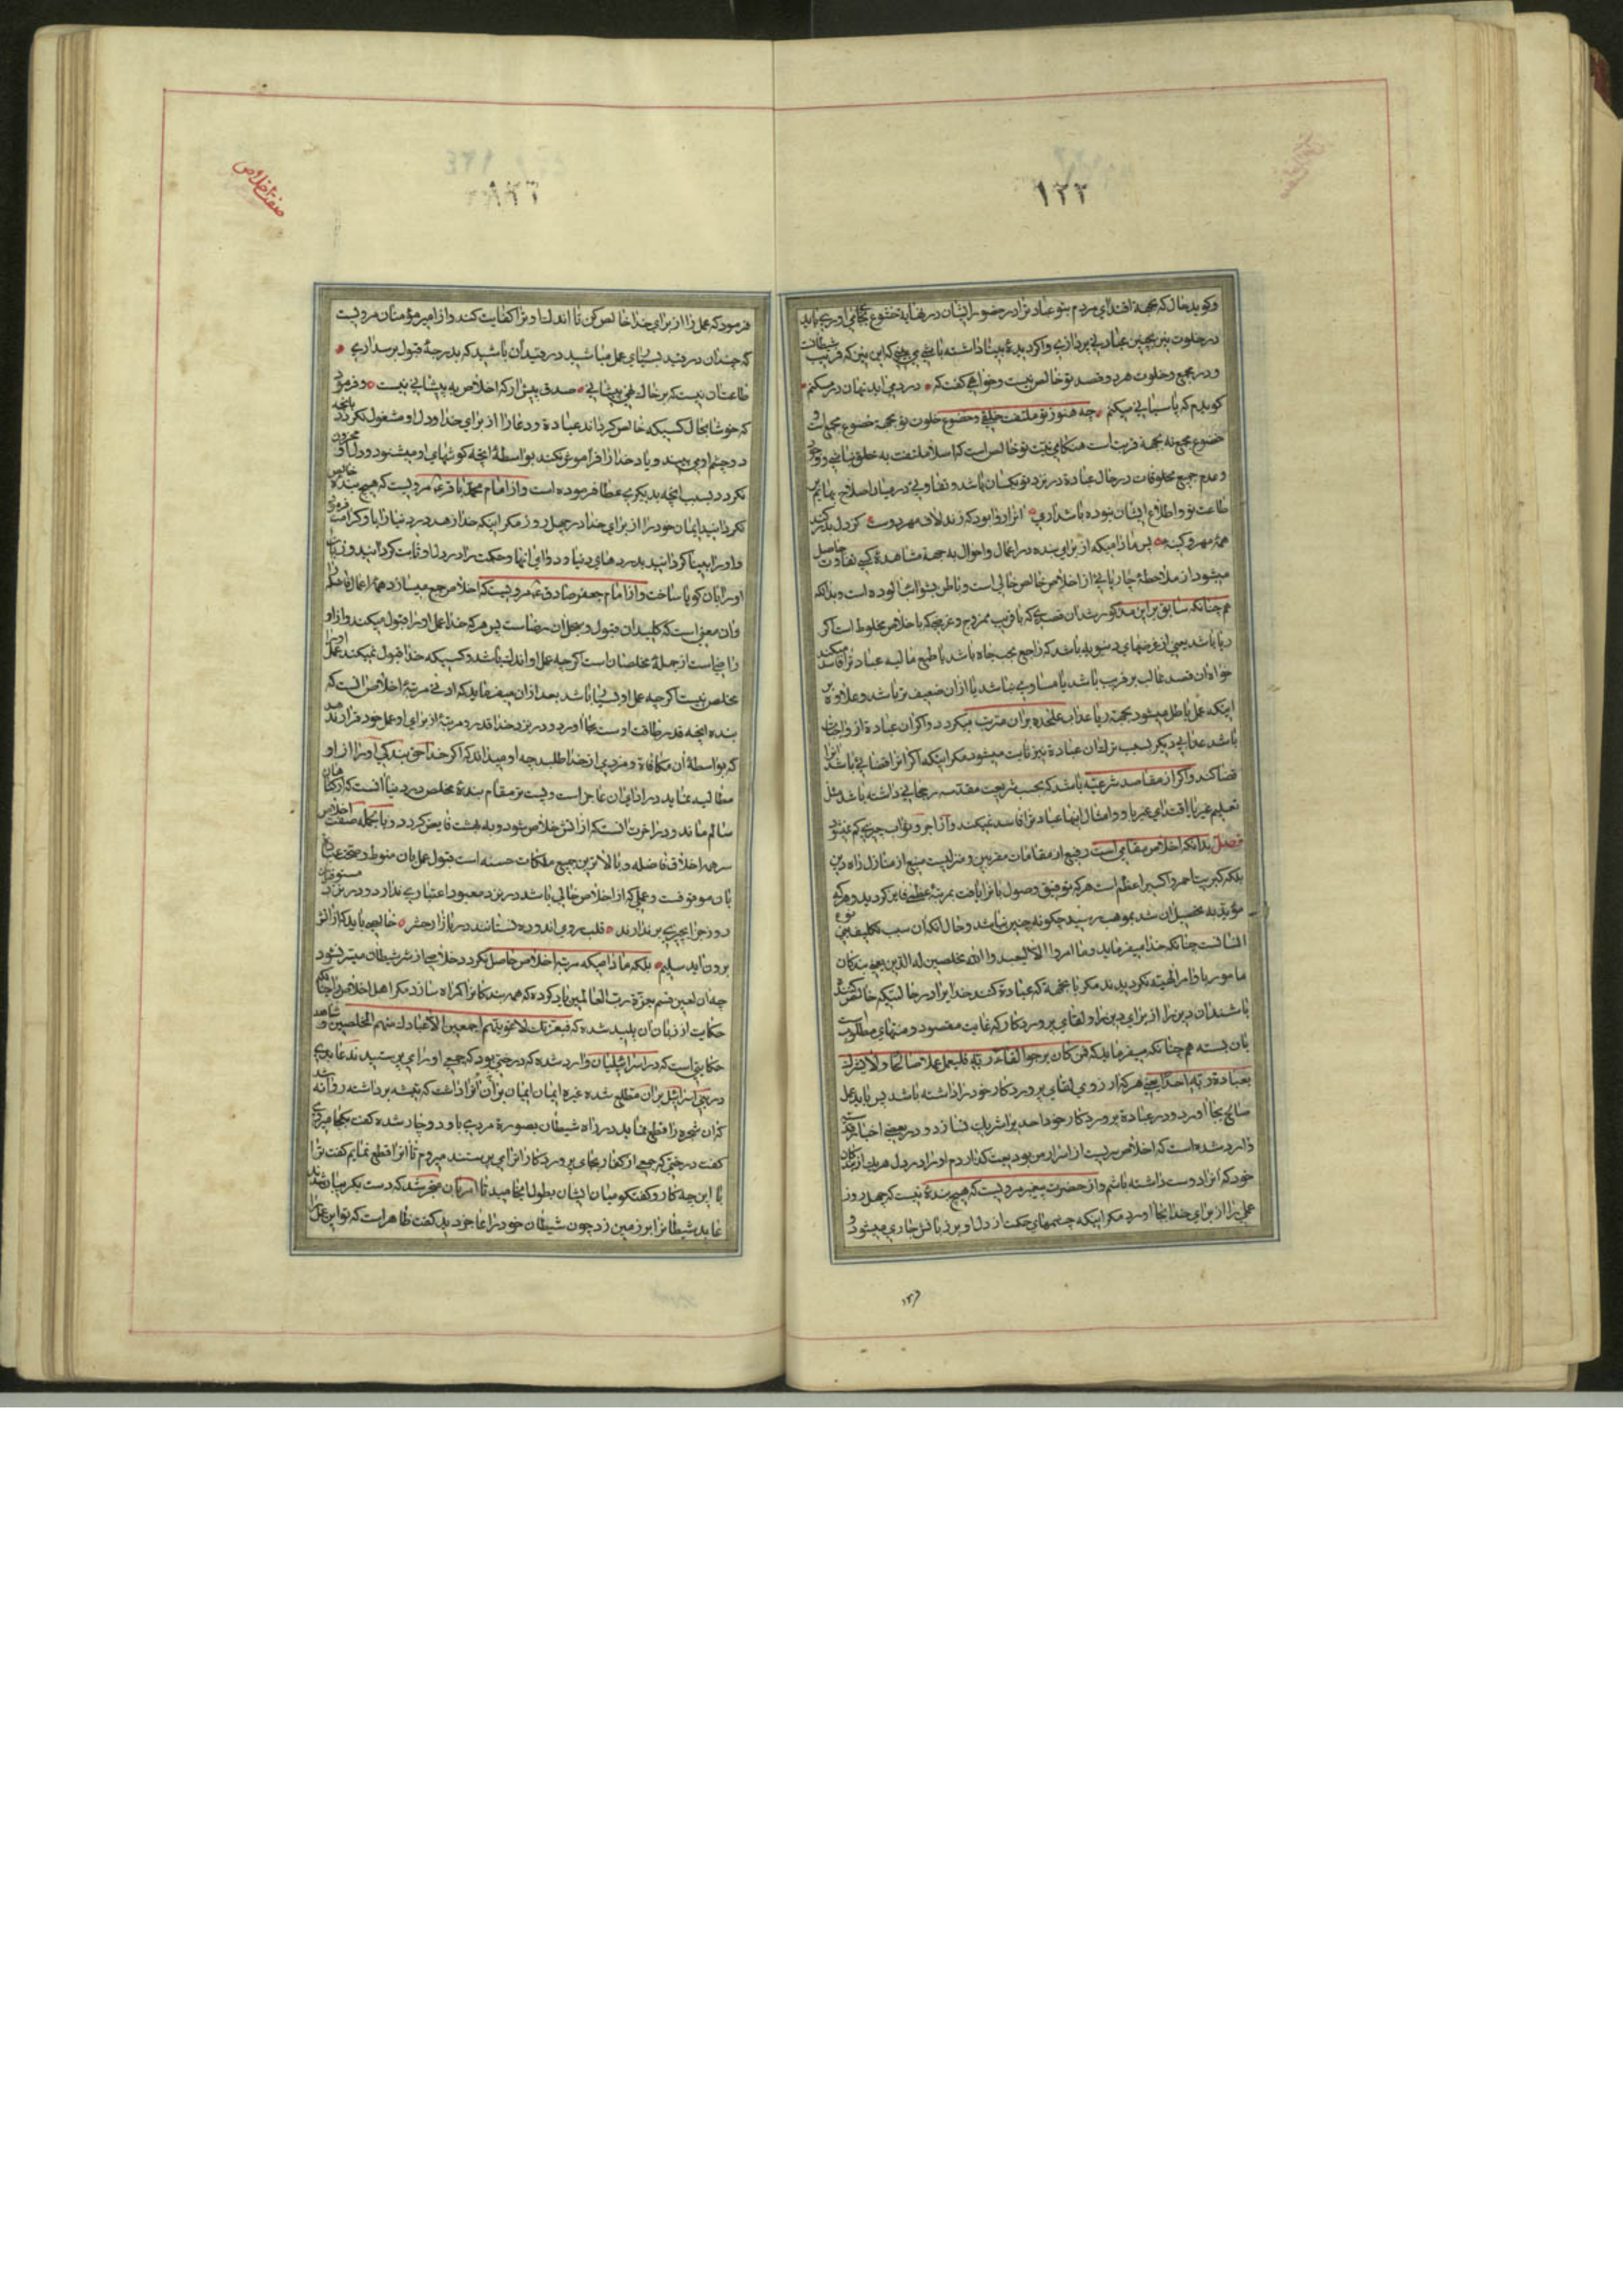 ۱۲۲
وکوید حال که بجهة اقتدای مردم بتو عبادتزا در حضور ایشان در نهایة خشوع بجا می اوری باید
در خلوت نیز بهچنین عبادتی پردازی و اکر دیدهٔ بینا داشته باشی می بینی که این نیز که فریب شیطانست
و در مجمع و خلوت هر دو قصد تو خالص نیست و خواهی کفت که درد می اید نهان در مسکنم
کویدم که پاسبانی میکنم چه هنوز تو ملتفت خلقی و خضوع خلوت تو بجهة خضوع مجمع است و
خضوع مجمع نه بجهة قربت است هنکامی نیت تو خالص است که اصلا ملتفت به خلق نباشی و وجود
و عدم جمیع مخلوقات در حال عبادة در نزد تو یکسان باشد و تفاوتی در میان
طاعت تو و اطلاع ایشان نبوده باشد انرا روا بود که زند لاف مهر دوست کز دل بدر کند
همه مهر و کینه پس مادامیکه از برای بنده در اعمال و احوال به جهة مشاهدهٔ کسی تفاوت حاصل
میشود از ملاحظهٔ چارپائی از اخلاص خالص خالی است و باطن بشوائب الوده است و بدانکه
هم چنانکه سابق بر این مذکور شد ان قصدی که با قربت ممزوج و غرضیکه با خلاص مخلوط است اکر
ریا باشد یعنی از غرضهای دنیویه باشد که راجع بحب جاه باشد یا طمع مالیه عبادتزا فاسد میکند
خواه ان قصد غالب بر قربت باشد یا مساوی باشد یا از ان ضعیف تر باشد و علاوه بر
اینکه عمل باطل میشود بجهة ریا عذاب علیحده بران مترتب میکردد و اکر ان عبادة از واجبات
باشد عذابی دیکر بسبب ترک ان عبادة نیز ثابت میشود مکر اینکه اکر انرا قضائی باشد انرا
قضا کند و اکر از مقاصد شرعیه باشد که بحسب شریعت مقدسه رجحانی داشته باشد مثل
تعلیم غیر یا اقتدای غیر باو و امثال اینها عبادتزا فاسد نمیکند و از اجر و ثواب چیزی کم نمیشود
فصل بدانکه اخلاص مقامی است رفیع از مقامات مقربین و منزلیست منیع از منازل راه دین
بلکه کبریت احمر و اکسیر اعظم است هر که توفیق وصول بانرا یافت بمرتبهٔ عظمی فایز کردید و هر که
مؤید به تحصیل ان شد بموهب رسید چکونه چنین نباشد و حال انکه ان سبب تکلیف بنی نوع
انسانست چنانکه خدا میفرماید و ما امروا الا لیعبدوا الله مخلصین له الدین یعنی بندکان
مامور باوامر الهیه نکردیدند مکر باینجهة که عبادة کنند خدایرا در حالتیکه خالص کننده
باشند ان دین را از برای دین را و لقای پروردکار که غایت مقصود و منتهای مطلوبست
بان بسته هم چنانکه میفرماید که فمن کان یرجوا لقاء ربه فلیعمل عملا صالحا و لا یشرک
بعبادة ربه احدا یعنی هر که ارزوی لقای پروردکار خود را داشته باشد پس باید عمل
صالح بجا اورد و در عبادة پروردکار خود احدیرا شریک نسازد و در بعضی اخبار قدسی
وارد شده است که اخلاص سریست از اسرار من بودیعت کذاردم او را در دل هر یک از بندکان
خود که انرا دوست داشته باشم و از حضرت پیغمبر مرویست که هیچ بندهٔ نیست که چهل روز
عملی را از برای خدا بجا اورد مکر اینکه چشمهای حکمت از دل او بر زبانش جاری میشود و
صفت اخلاص
فرمود که عمل را از برای خدا خالص کن تا اندک ان ترا کفایت کند و از امیر مؤمنان مرویست
که چندان در قید بسیاری عمل مباشید در قید ان باشید که بدرجهٔ قبول برسد اری
طاعت ان نیست که بر خاک نهی پیشانی صدق پیش ار که اخلاص به پیشانی نیست و فرمود
که خوشا بحال کسیکه خالص کرداند عبادة و دعا را از برای خدا و دل او مشغول نکردد بانچه
دو چشم او می بیند و یاد خدا را فراموش نکند بواسطهٔ انچه کوشهای او میشنود و دل او محزون
نکردد بسبب انچه بدیکری عطا فرموده است و از امام محمد باقر ع مرویست که هیچ بنده خالص
نکردانید ایمان خود را از برای خدا در چهل روز مکر اینکه خدا زهد در دنیا را باو کرامت فرمود
و او را بینا کردانید بدردهای دنیا و دوای انها و حکمت را در دل او ثابت کردانید و زبان
او را بان کویا ساخت و از امام جعفر صادق ع مرویست که اخلاص جمع میسازد همهٔ اعمال فاضله را
و ان معنی است که کلید ان قبول و سجل ان رضاست پس هر که خدا عمل او را قبول میکند و از او
راضیاست از جملهٔ مخلصان است اکر چه عمل او اندک باشد و کسیکه خدا قبول نمیکند عمل او را
مخلص نیست اکر چه عمل او بسیار باشد بعد از ان میفرماید که ادنی مرتبهٔ اخلاص انست که
بنده انچه قدر طاقت اوست بجا اورد و در نزد خدا قدر و مرتبهٔ از برای او عمل خود قرار ندهد
که بواسطهٔ ان مکافاة و مزدی از خدا طلبد چه او میداند که اکر خدا حق بندکی او را از او
مطالبه نماید در ادای ان عاجز است و پست تر مقام بندهٔ مخلص در دنیا انست که از کناهان
سالم ماند و در اخرت انستکه از اتش خلاص شود و به بهشت فایض کردد و بالجمله صفت اخلاص
سرهمه اخلاق فاضله و بالاترین جمیع ملکات حسنه است قبول عمل بان منوط و صحت عبادت
بان موقوفست و عملی که از اخلاص خالی باشد در نزد معبود اعتباری ندارد و در نزد مستوفیان
روز جزا بچیزی بر ندارند قلب روی اندود نستانند در بازار حشر خالصی باید که از اتش
برون اید سلیم بلکه مادامیکه مرتبه اخلاص حاصل نکردد خلاصی از شر شیطان میسر نشود
چه ان لعین قسم بعزة رب العالمین یاد کرده که همه بندکانرا کمراه سازد مکر اهل اخلاص را چنانکه
حکایت از زبان ان پلید شده که فبعزتک لاغوینهم اجمعین الا عبادک منهم المخلصین و شاهد
حکایتی است که در اسرائیلیان وارد شده که درختی بود که جمعی او را می پرستیدند عابدی
در بنی اسرائیل بران مطلع شده غیره ایمان بران او را داشت که تیشه برداشته روانه شد
که ان شجره را قطع نماید در راه شیطان بصورة مردی باو دوچار شده کفت بکجا میروی
کفت درختی که جمعی از کفار بجای پروردکار انرا می پرستند میروم تا انرا قطع نمایم کفت ترا
با این چه کار و کفتکو میان ایشان بطول انجامید تا امر بان منجر شد که دست بکریبان شدند
عابد شیطانرا بر زمین زد چون شیطان خود را عاجز دید کفت ظاهر است که تو این عمل را